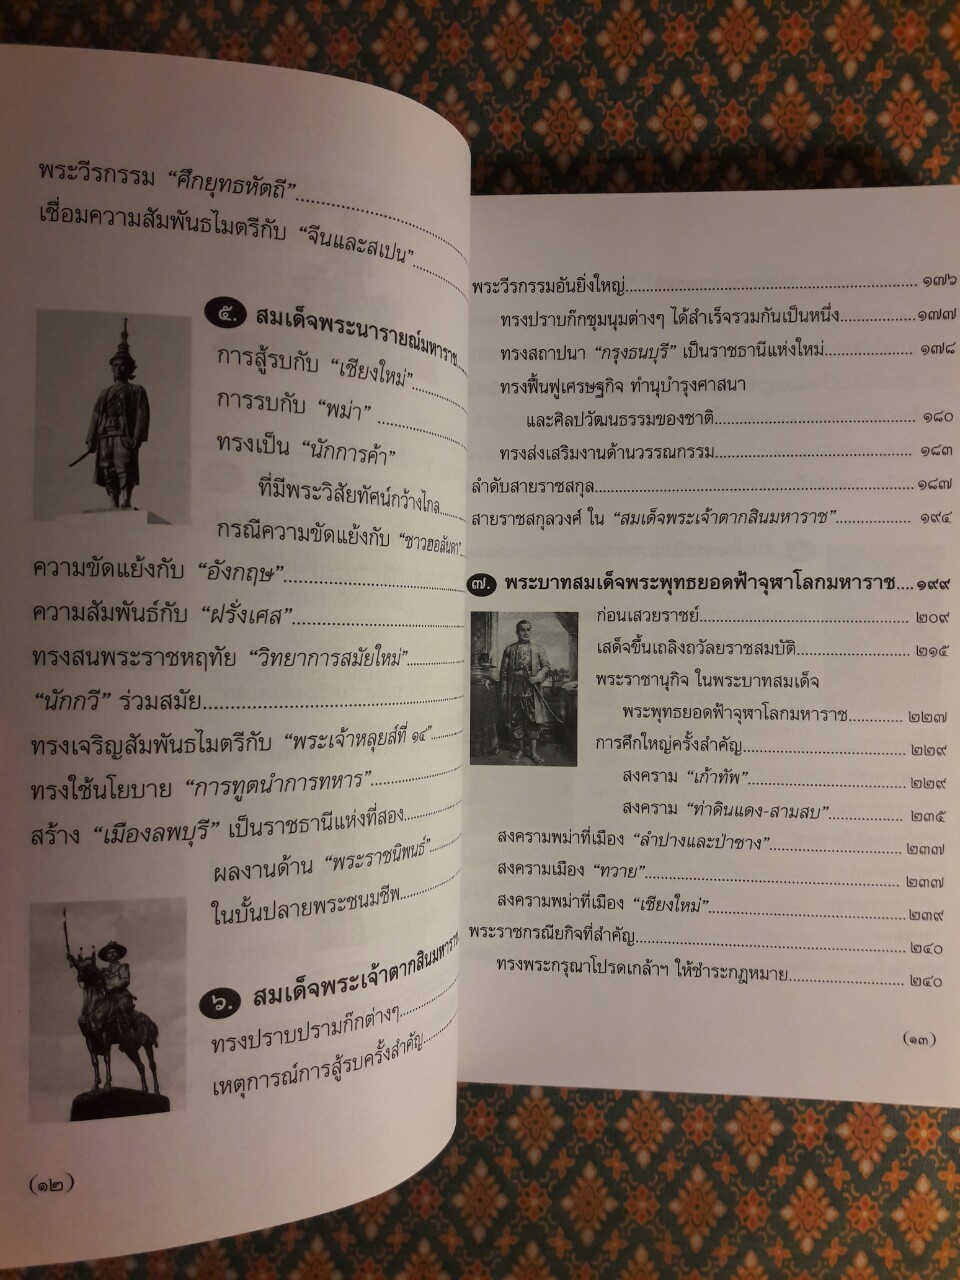 พระวีรกรรม “ศึกยุทธหัตถี”
เชื่อมความสัมพันธไมตรีกับ “จีนและสเปน”
๕. สมเด็จพระนารายณ์มหาราช
การสู้รบกับ “เชียงใหม่”
การรบกับ “พม่า”
ทรงเป็น “นักการค้า”
ที่มีพระวิสัยทัศน์กว้างไกล
กรณีความขัดแย้งกับ “ชาวฮอลันดา”
ความขัดแย้งกับ “อังกฤษ”
ความสัมพันธ์กับ “ฝรั่งเศส”
ทรงสนพระราชหฤทัย “วิทยาการสมัยใหม่”
“นักกวี” ร่วมสมัย
ทรงเจริญสัมพันธไมตรีกับ “พระเจ้าหลุยส์ที่ ๑๔”
ทรงใช้นโยบาย “การทูตนำการทหาร”
สร้าง “เมืองลพบุรี” เป็นราชธานีแห่งที่สอง
ผลงานด้าน “พระราชนิพนธ์”
ในบั้นปลายพระชนมชีพ
๖. สมเด็จพระเจ้าตากสินมหาราช
ทรงปราบปรามก๊กต่างๆ
เหตุการณ์การสู้รบครั้งสำคัญ
(๑๒)
พระวีรกรรมอันยิ่งใหญ่ ๑๗๖
ทรงปราบก๊กชุมนุมต่างๆ ได้สำเร็จรวมกันเป็นหนึ่ง ๑๗๗
ทรงสถาปนา “กรุงธนบุรี” เป็นราชธานีแห่งใหม่ ๑๗๘
ทรงฟื้นฟูเศรษฐกิจ ทำนุบำรุงศาสนา
และศิลปวัฒนธรรมของชาติ ๑๘๐
ทรงส่งเสริมงานด้านวรรณกรรม ๑๘๓
ลำดับสายราชสกุล ๑๘๗
สายราชสกุลวงศ์ ใน “สมเด็จพระเจ้าตากสินมหาราช” ๑๙๔
๗. พระบาทสมเด็จพระพุทธยอดฟ้าจุฬาโลกมหาราช ๑๙๙
ก่อนเสวยราชย์ ๒๐๙
เสด็จขึ้นเถลิงถวัลยราชสมบัติ ๒๑๕
พระราชานุกิจ ในพระบาทสมเด็จ
พระพุทธยอดฟ้าจุฬาโลกมหาราช ๒๒๗
การศึกใหญ่ครั้งสำคัญ ๒๒๙
สงคราม “เก้าทัพ” ๒๒๙
สงคราม “ท่าดินแดง-สามสบ” ๒๓๕
สงครามพม่าที่เมือง “ลำปางและป่าซาง” ๒๓๗
สงครามเมือง “ทวาย” ๒๓๗
สงครามพม่าที่เมือง “เชียงใหม่” ๒๓๙
พระราชกรณียกิจที่สำคัญ ๒๔๐
ทรงพระกรุณาโปรดเกล้าฯ ให้ชำระกฎหมาย ๒๔๐
(๑๓)